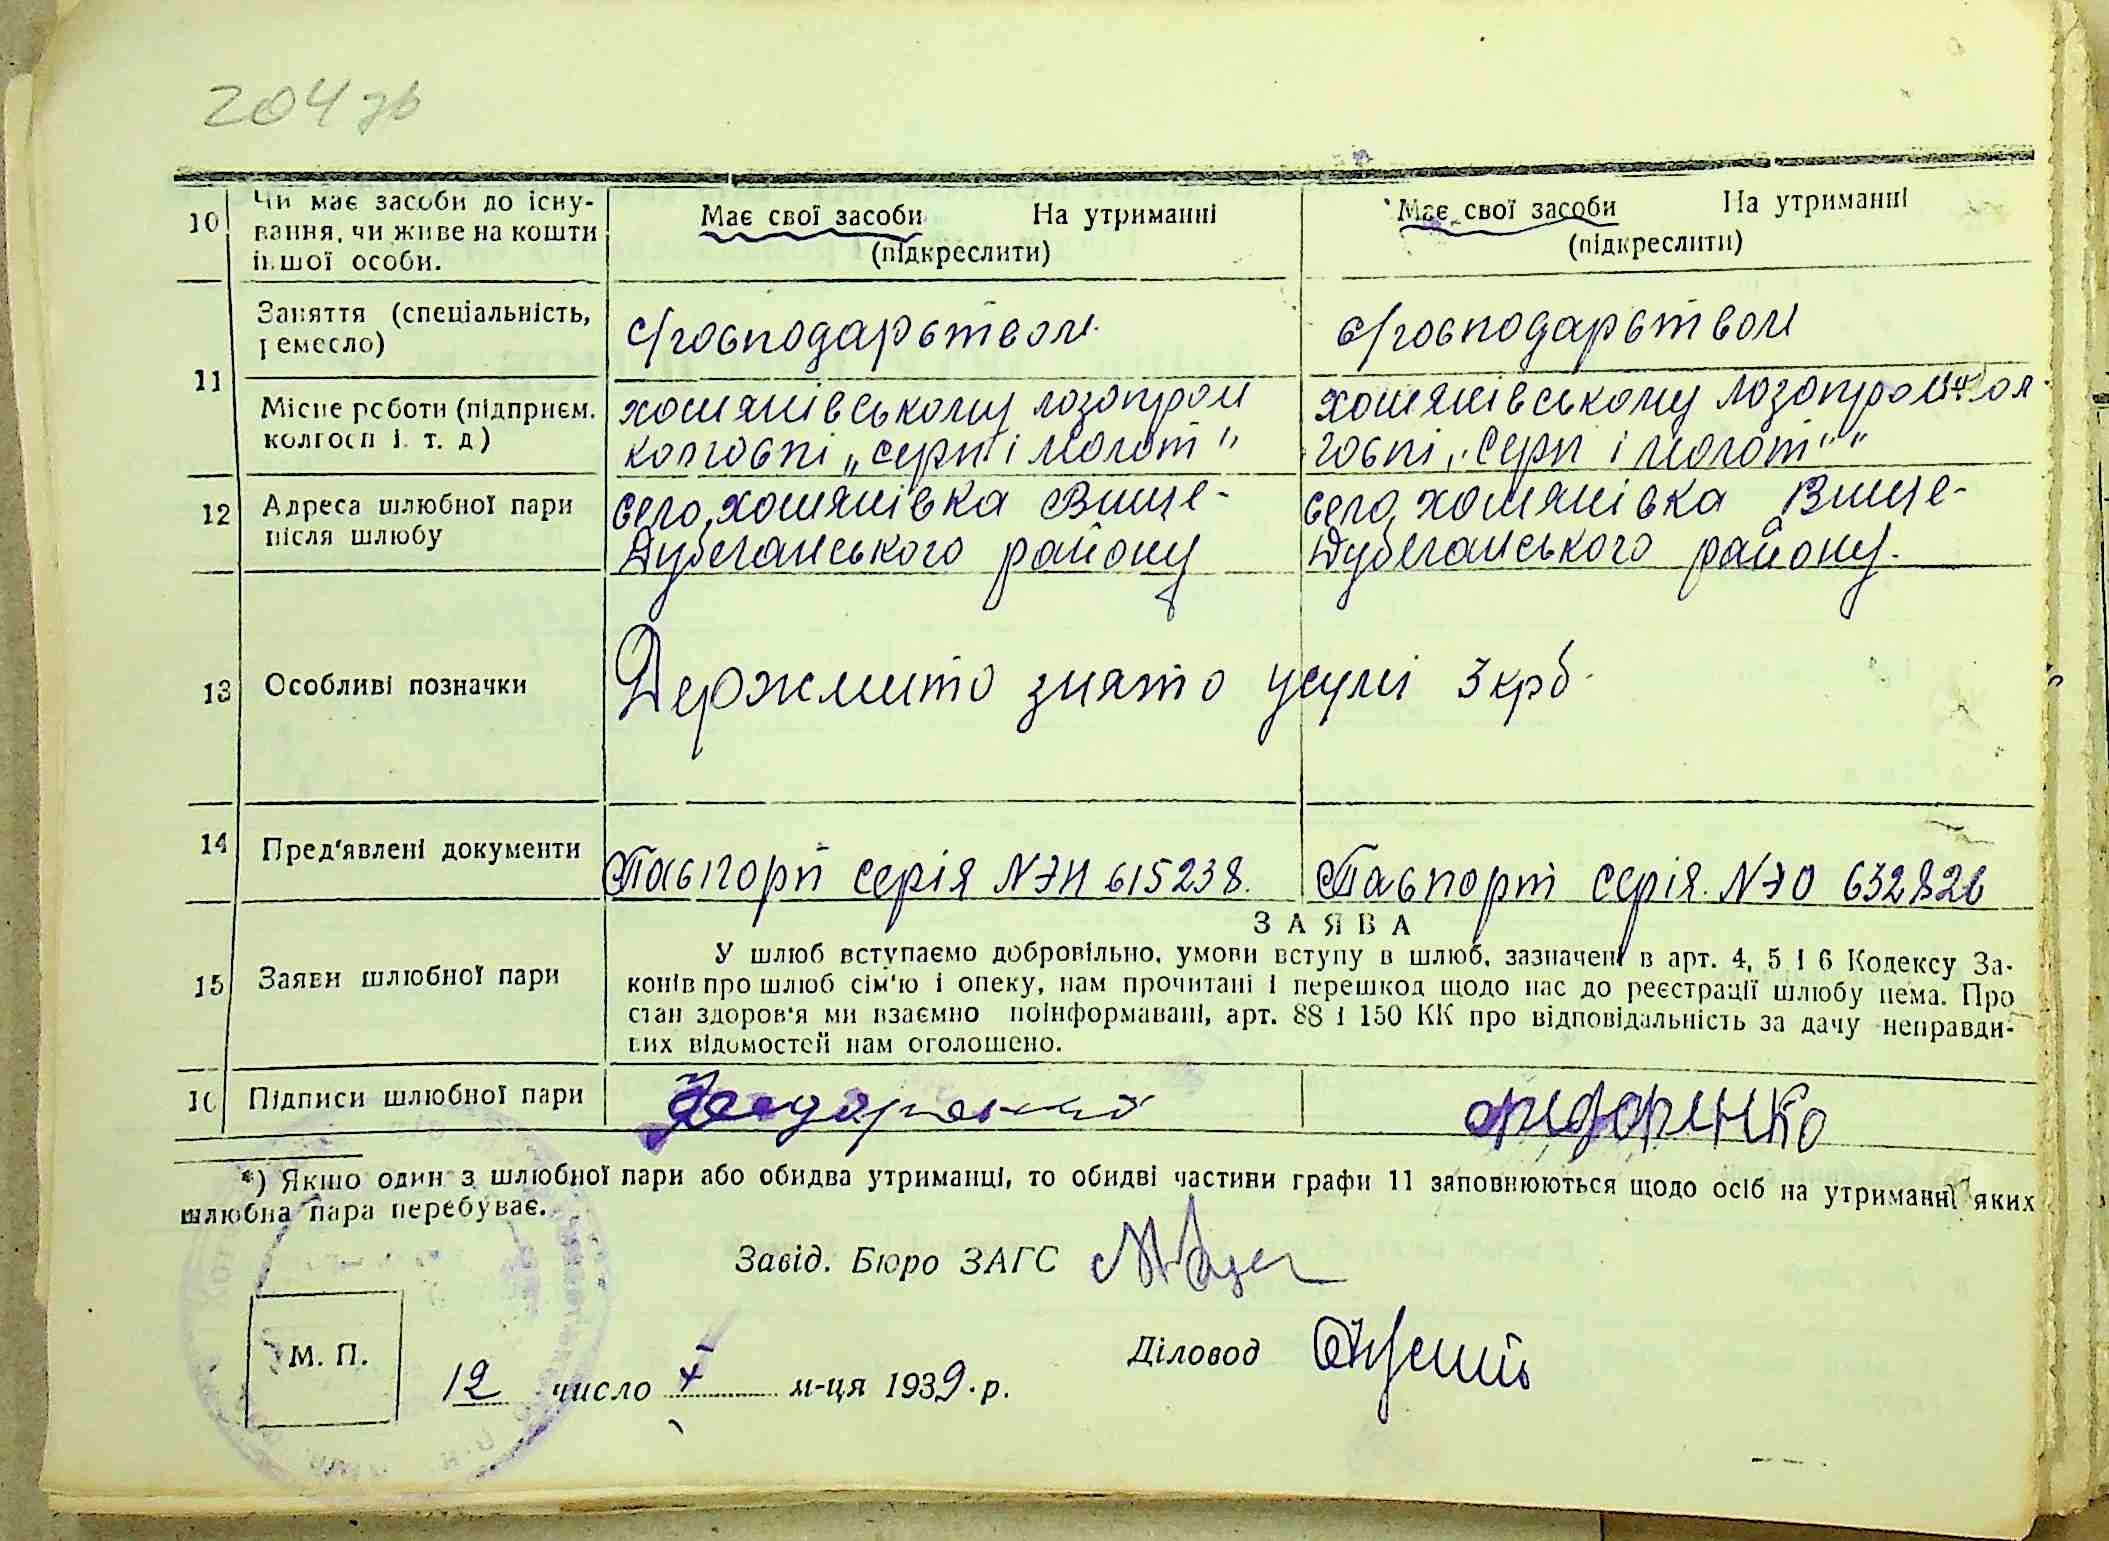 204 зв
10
Чи має засоби до існу-
вання, чи живе на кошти
іншої особи.
Має свої засоби На утриманні
(підкреслити)
Має свої засоби На утриманні
(підкреслити)
11
Заняття (спеціальність,
ремесло)
с/господарством
с/господарством
Місце роботи (підприєм.
колгосп і. т. д)
хотянівському лозопром
колгоспі „серп і молот"
хотянівському лозопром кол
госпі „Серп і молот"
12
Адреса шлюбної пари
після шлюбу
село, хотянівка Више-
Дубечанського району
село, хотянівка Више-
Дубечанського району.
13
Особливі позначки
Держмито знято усумі 3 крб.
14
Пред'явлені документи
Паспорт серія № ЭН 615238.
Паспорт серія. № ЭО 632826
15
Заяви шлюбної пари
ЗАЯВА
У шлюб вступаємо добровільно, умови вступу в шлюб, зазначені в арт. 4, 5 і 6 Кодексу За-
конів про шлюб сім'ю і опеку, нам прочитані і перешкод щодо нас до реєстрації шлюбу нема. Про
стан здоров'я ми взаємно поінформавані, арт. 88 і 150 КК про відповідальність за дачу неправди-
вих відомостей нам оголошено.
16
Підписи шлюбної пари
Федоренко
*) Якшо один з шлюбної пари або обидва утриманці, то обидві частини графи 11 заповнюються щодо осіб на утриманні яких
шлюбна пара перебуває.
Завід. Бюро ЗАГС
Діловод
М. П.
12 число X м-ця 1939 р.